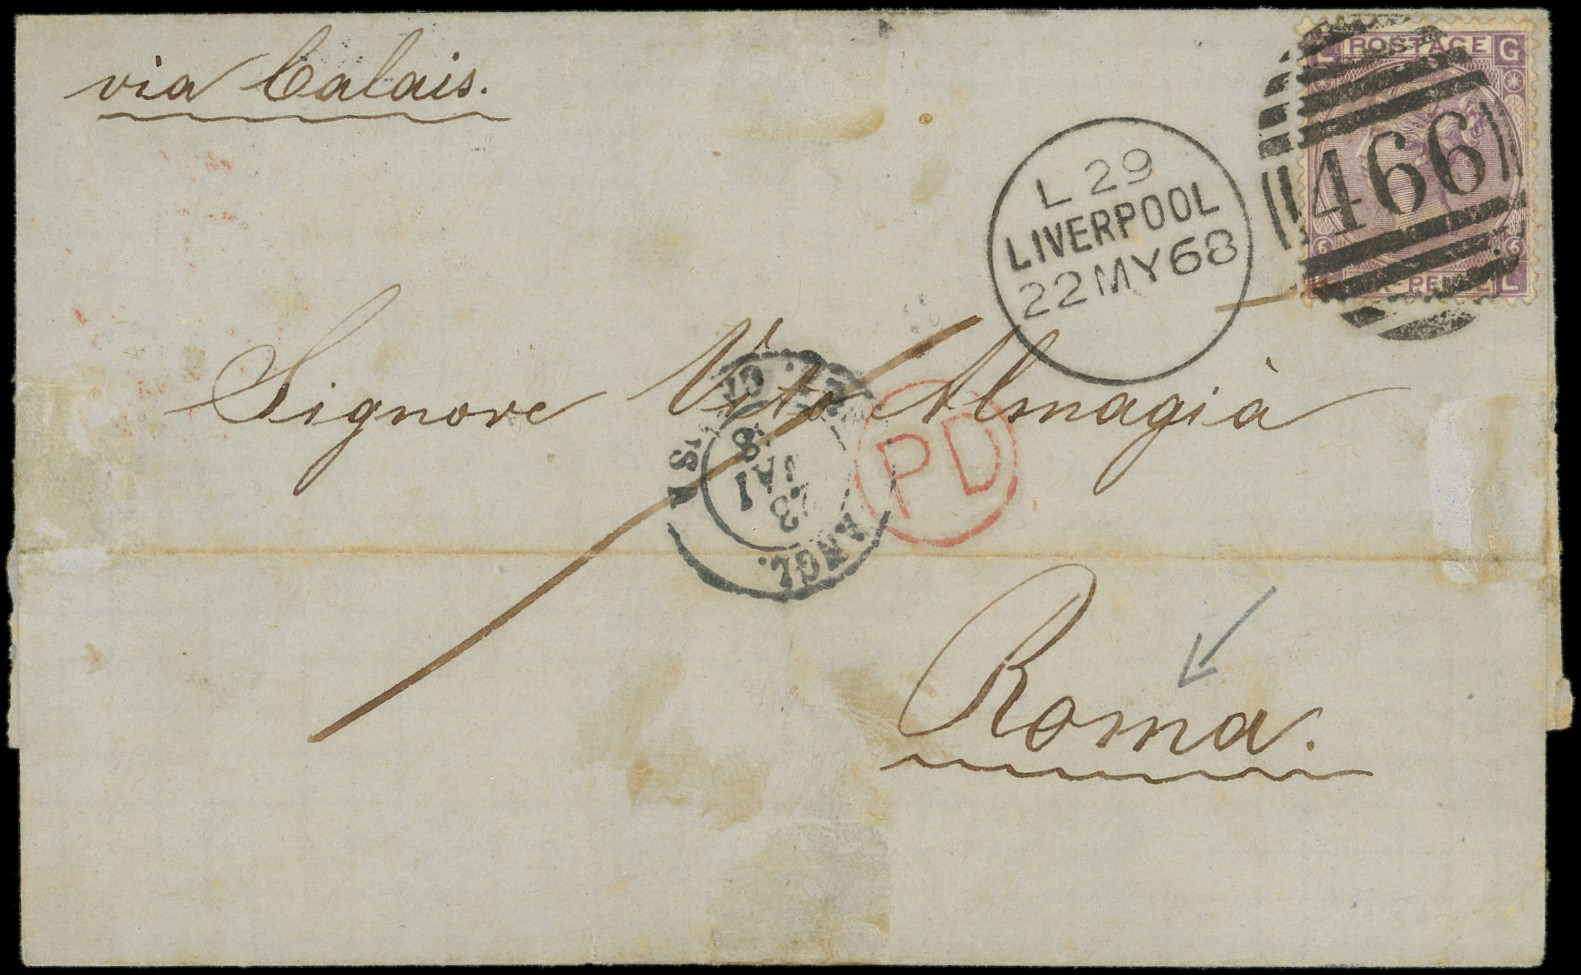 via Calais.
L POSTAGE G
466
L 29
LIVERPOOL
22 MY 68
Signore Vito Almagià
ANGL.
23
PD
Roma.
L